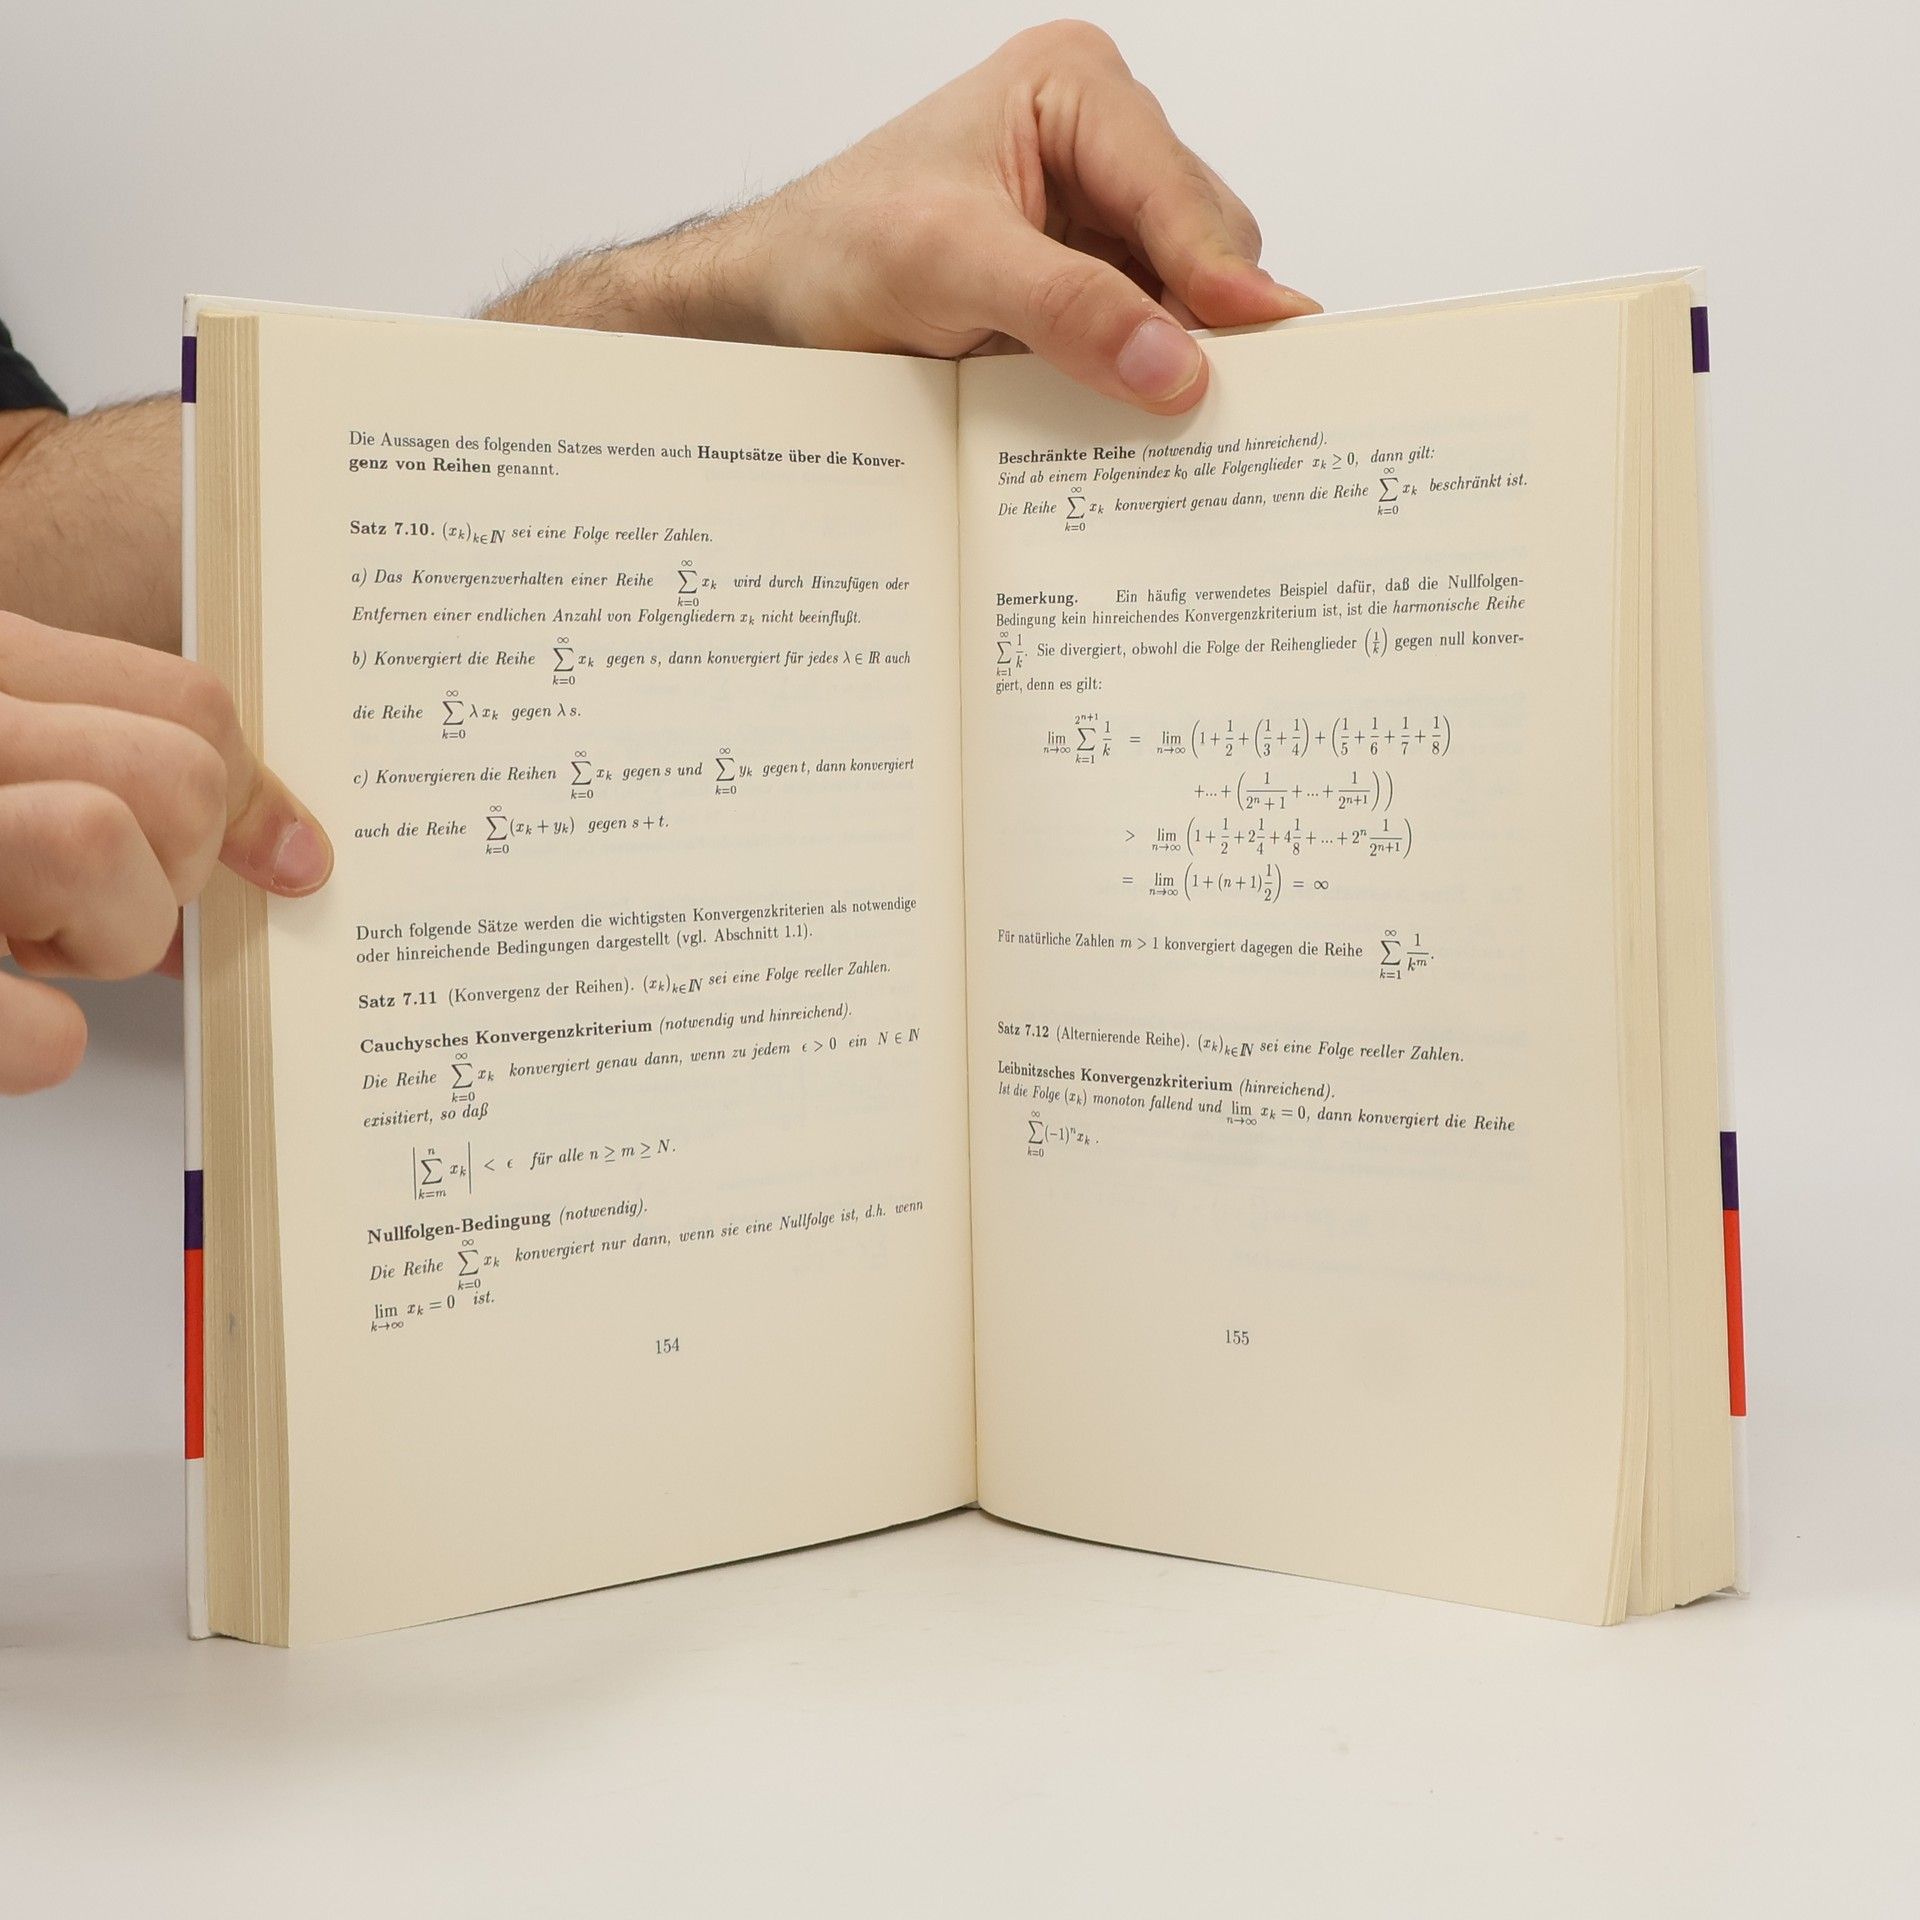 Die Aussagen des folgenden Satzes werden auch Hauptsätze über die Konver-
genz von Reihen genannt.
Satz 7.10. (x_k)_{k∈ℕ} sei eine Folge reeller Zahlen.
a) Das Konvergenzverhalten einer Reihe ∑_{k=0}^{∞} x_k wird durch Hinzufügen oder
Entfernen einer endlichen Anzahl von Folgengliedern x_k nicht beeinflußt.
b) Konvergiert die Reihe ∑_{k=0}^{∞} x_k gegen s, dann konvergiert für jedes λ ∈ ℝ auch
die Reihe ∑_{k=0}^{∞} λ x_k gegen λ s.
c) Konvergieren die Reihen ∑_{k=0}^{∞} x_k gegen s und ∑_{k=0}^{∞} y_k gegen t, dann konvergiert
auch die Reihe ∑_{k=0}^{∞} (x_k + y_k) gegen s + t.
Durch folgende Sätze werden die wichtigsten Konvergenzkriterien als notwendige
oder hinreichende Bedingungen dargestellt (vgl. Abschnitt 1.1).
Satz 7.11 (Konvergenz der Reihen). (x_k)_{k∈ℕ} sei eine Folge reeller Zahlen.
Cauchysches Konvergenzkriterium (notwendig und hinreichend).
Die Reihe ∑_{k=0}^{∞} x_k konvergiert genau dann, wenn zu jedem ϵ > 0 ein N ∈ ℕ
exisitiert, so daß
|∑_{k=m}^{n} x_k| < ϵ für alle n ≥ m ≥ N.
Nullfolgen-Bedingung (notwendig).
Die Reihe ∑_{k=0}^{∞} x_k konvergiert nur dann, wenn sie eine Nullfolge ist, d.h. wenn
lim_{k→∞} x_k = 0 ist.
154
Beschränkte Reihe (notwendig und hinreichend).
Sind ab einem Folgenindex k_0 alle Folgenglieder x_k ≥ 0, dann gilt:
Die Reihe ∑_{k=0}^{∞} x_k konvergiert genau dann, wenn die Reihe ∑_{k=0}^{∞} x_k beschränkt ist.
Bemerkung. Ein häufig verwendetes Beispiel dafür, daß die Nullfolgen-
Bedingung kein hinreichendes Konvergenzkriterium ist, ist die harmonische Reihe
∑_{k=1}^{∞} 1/k. Sie divergiert, obwohl die Folge der Reihenglieder (1/k) gegen null konver-
giert, denn es gilt:
lim_{n→∞} ∑_{k=1}^{2^{n+1}} 1/k = lim_{n→∞} (1 + 1/2 + (1/3 + 1/4) + (1/5 + 1/6 + 1/7 + 1/8)
+... + (1/(2^n + 1) + ... + 1/2^{n+1}))
> lim_{n→∞} (1 + 1/2 + 2 1/4 + 4 1/8 + ... + 2^n 1/2^{n+1})
= lim_{n→∞} (1 + (n + 1) 1/2) = ∞
Für natürliche Zahlen m > 1 konvergiert dagegen die Reihe ∑_{k=1}^{∞} 1/k^m.
Satz 7.12 (Alternierende Reihe). (x_k)_{k∈ℕ} sei eine Folge reeller Zahlen.
Leibnitzsches Konvergenzkriterium (hinreichend).
Ist die Folge (x_k) monoton fallend und lim_{n→∞} x_k = 0, dann konvergiert die Reihe
∑_{k=0}^{∞} (-1)^n x_k .
155